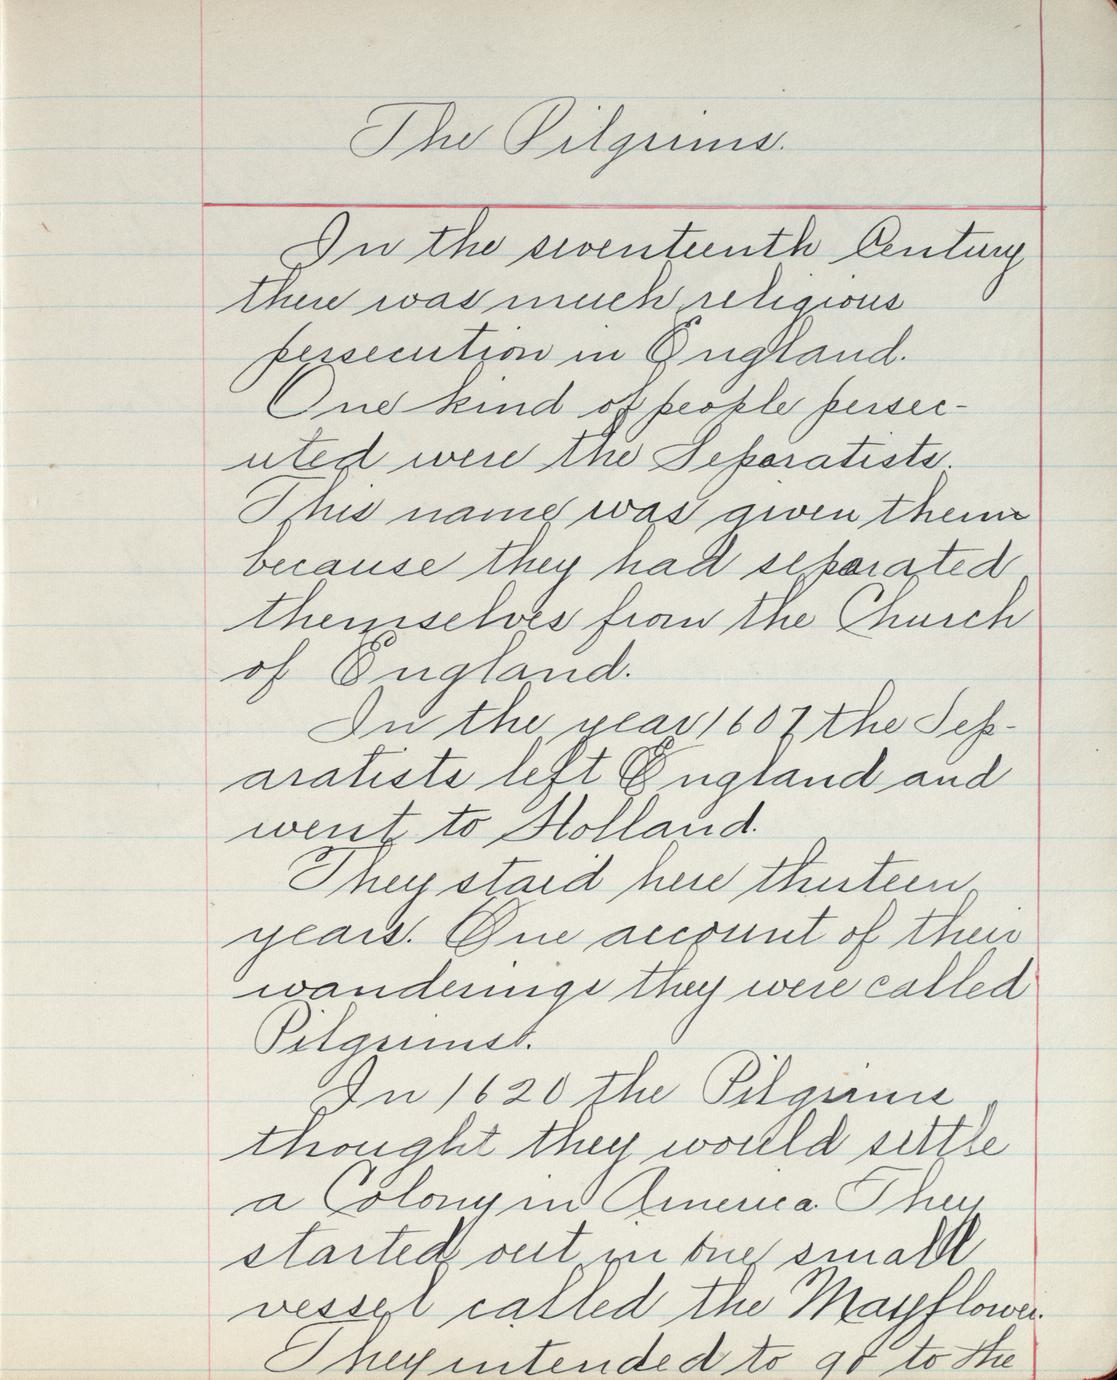 The Pilgrims.
In the seventeenth Century
there was much religious
persecution in England.
One kind of people persec-
uted were the Separatists.
This name was given them
because they had separated
themselves from the Church
of England.
In the year 1607 the Sep-
aratists left England and
went to Holland.
They staid here thirteen
years. One account of their
wanderings they were called
Pilgrims.
In 1620 the Pilgrims
thought they would settle
a Colony in America. They
started out in one small
vessel called the Mayflower.
They intended to go to the